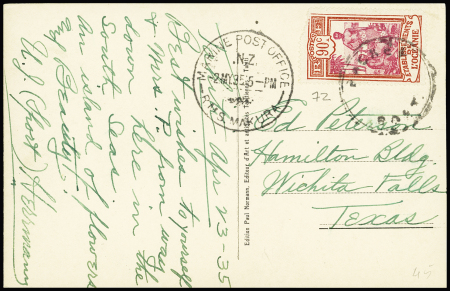 Apr 23-35
Best wishes to yourself
& Mrs. P. from way
down here in the
South Seas
An island of flowers
and beauty.
W. J. (Short) Herrmann
MARINE POST OFFICE
N-Z
5-PM
RMS MAKURA
90c
ETABLISSEMENTS
DE
L'OCEANIE
72
Ed Peterson
Hamilton Bldg.
Wichita Falls
Texas
Edition Paul Normann. Editeur d'Art et
45